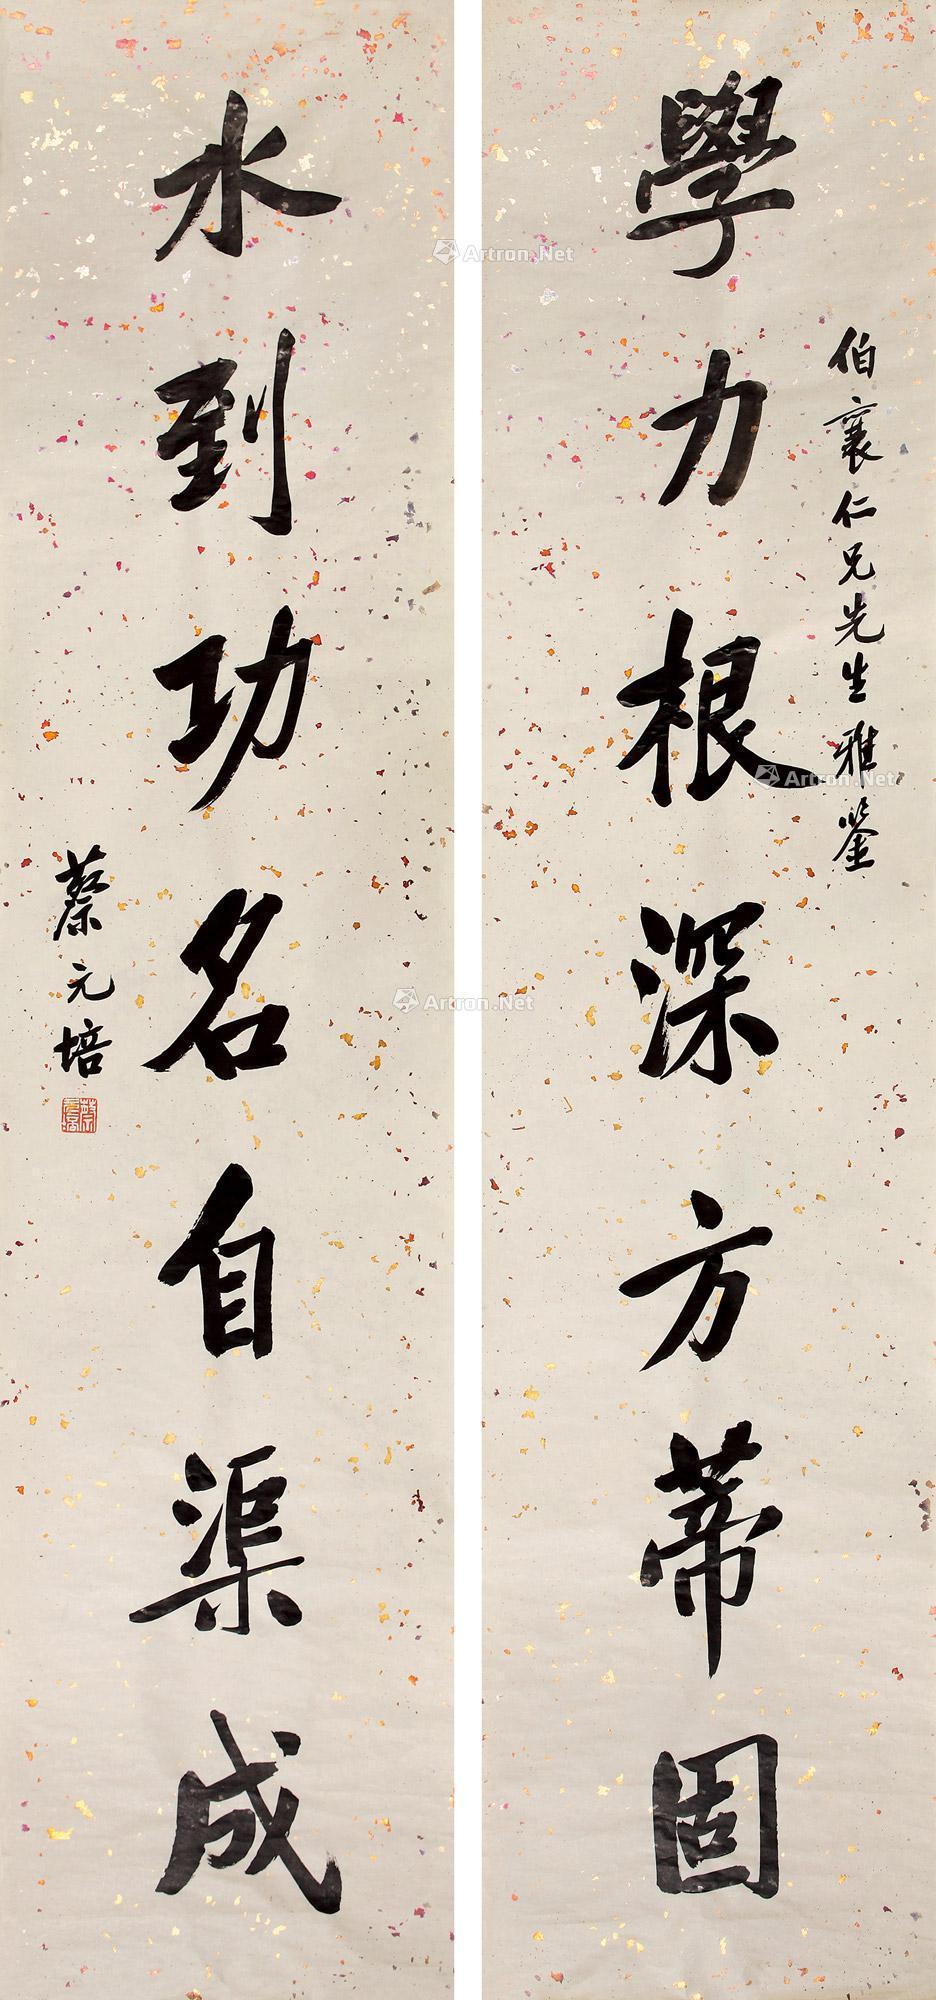 伯襄仁兄先生雅鉴
學力根深方蒂固
水到功名自渠成
蔡元培
Artron.Net
Artron.Net
Artron.Net